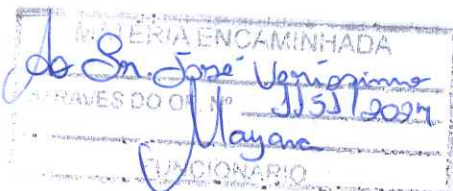 MATÉRIA ENCAMINHADA
Ao Sr. José
ATRAVÉS DO OF. Nº 1151/2024
Mayara
FUNCIONÁRIO